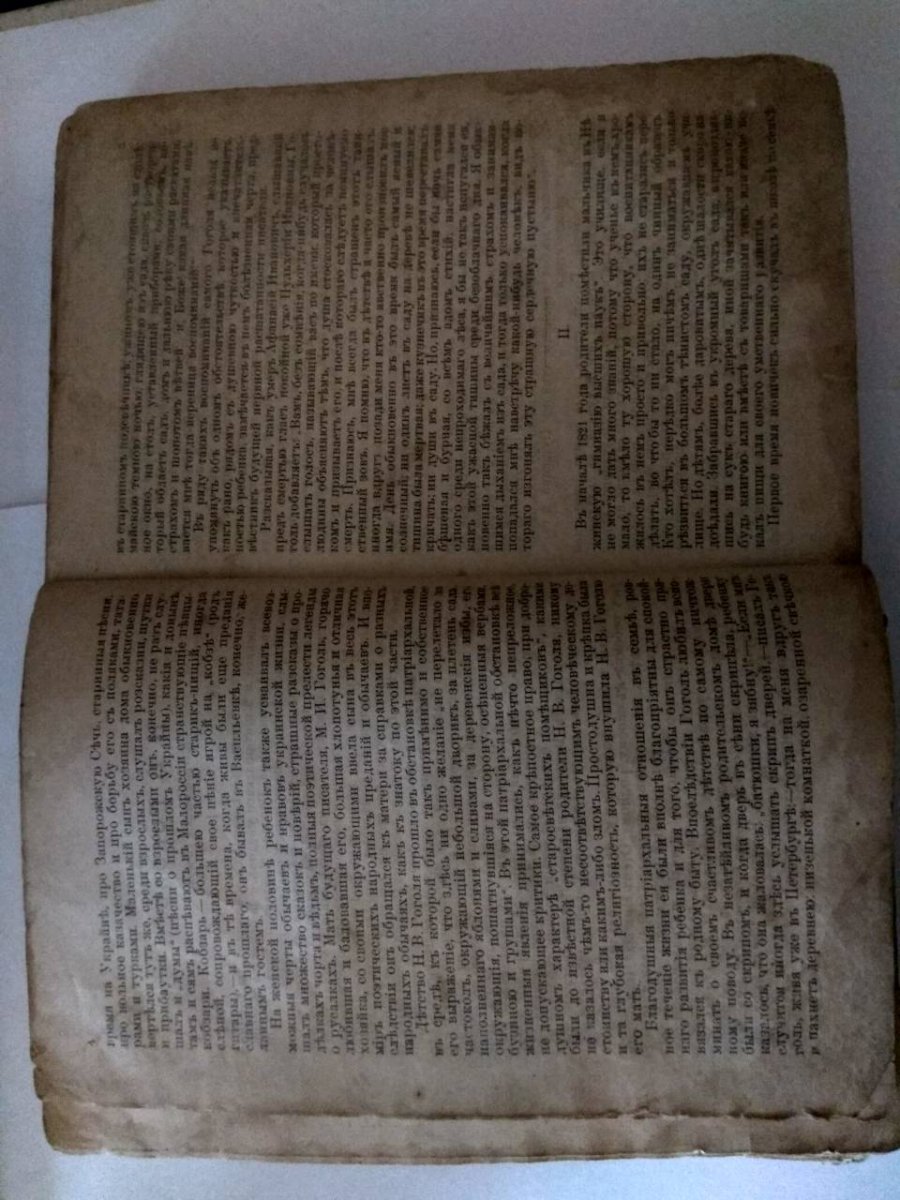 4
время на Украйнѣ, про Запорожскую Сѣчь, старинныя пѣсни
про вольное казачество и про борьбу его съ поляками, тата-
рами и турками. Маленькій сынъ хозяина дома обыкновенно
вертѣлся тутъ же, среди взрослыхъ, слушалъ розсказни, шутки
и прибаутки. Вмѣстѣ со взрослыми онъ, конечно, не разъ слу-
шалъ и „думы“ (пѣсни о прошломъ Украйны), какія и донынѣ
тамъ и сямъ распѣваютъ въ Малороссіи странствующіе пѣвцы,
кобзари. Кобзарь—большею частью старикъ-нищій, иногда
слѣпой, сопровождающій свое пѣніе игрой на „кобзѣ“ (родъ
гитары),—и въ тѣ времена, когда живы были еще преданія
славнаго прошлаго, онъ бывалъ въ Васильевкѣ, конечно, же-
ланнымъ гостемъ.
На женской половинѣ ребенокъ также усваивалъ всевоз-
можныя черты обычаевъ и нравовъ украинской жизни, слы-
шалъ множество сказокъ и повѣрій, страшные разсказы о про-
дѣлкахъ чорта и вѣдьмъ, полныя поэтической прелести легенды
о русалкахъ. Мать будущаго писателя, М. И. Гоголь, горячо
любившая и баловавшая его, большая хлопотунья и отличная
хозяйка, со своими окружающими ввела сына въ весь этотъ
міръ поэтическихъ народныхъ преданій и обычаевъ. И впо-
слѣдствіи онъ обращался къ матери за справками о разныхъ
народныхъ обычаяхъ, какъ къ знатоку по этой части.
Дѣтство Н. В. Гоголя прошло въ обстановкѣ патріархальной,
въ средѣ, къ которой было такъ примѣнимо и собственное
его выраженіе, что здѣсь „ни одно желаніе не перелетало за
частоколъ, окружающій небольшой дворикъ, за плетень сада,
наполненнаго яблонями и сливами, за деревенскія избы, его
окружающія, пошатнувшіяся на сторону, осѣненныя вербами,
бузиною и грушами“. Въ этой патріархальной обстановкѣ всѣ
жизненныя явленія принимались, какъ нѣчто непреложное,
не допускающее критики. Самое крѣпостное право, при добро-
душномъ характерѣ „старосвѣтскихъ помѣщиковъ“, какими
были до извѣстной степени родители Н. В. Гоголя, никому
не казалось чѣмъ-то несоотвѣтствующимъ человѣческому до-
стоинству или какимъ-либо зломъ. Простодушна и крѣпка была
и та глубокая религіозность, которую внушила Н. В. Гоголю
его мать.
Благодушныя патріархальныя отношенія въ семьѣ, ров-
ное теченіе жизни ея были вполнѣ благопріятны для спокой-
наго развитія ребенка и для того, чтобы онъ страстно при-
вязался къ родному быту. Впослѣдствіи Гоголь любилъ вспо-
минать о своемъ счастливомъ дѣтствѣ по самому ничтож-
ному поводу. Въ незатѣйливомъ родительскомъ домѣ двери
были со скрипомъ, и когда дверь въ сѣни скрипѣла, ребенку
казалось, что она жаловалась: „батюшки, я зябну!“—„Если мнѣ
случится иногда здѣсь услышать скрипъ дверей,—писалъ Го-
голь, живя уже въ Петербургѣ:—тогда на меня вдругъ такъ
и пахнетъ деревнею, низенькой комнаткой, озаренной свѣчкой
въ старинномъ подсвѣчникѣ, ужиномъ, уже стоящимъ на столѣ,
майскою темною ночью, глядящею изъ сада, сквозь растворен-
ное окно, на столъ, уставленный приборами, соловьемъ, ко-
торый обдаетъ садъ, домъ и дальнюю рѣку своими раскатами,
страхомъ и шопотомъ вѣтвей... и, Боже, какая длинная навѣ-
вается мнѣ тогда вереница воспоминаній!“
Въ ряду такихъ воспоминаній самого Гоголя нельзя не
упомянуть объ одномъ обстоятельствѣ, которое указываетъ,
какъ рано, рядомъ съ душевною чуткостью и впечатлитель-
ностью ребенка, замѣчается въ немъ болѣзненная черта, пред-
вѣстникъ будущей нервной расшатанности писателя.
Разсказывая, какъ умеръ Аѳанасій Ивановичъ, слышавшій
предъ смертью гласъ покойной уже Пульхеріи Ивановны, Го-
голь добавляетъ: „Вамъ, безъ сомнѣнія, когда-нибудь случалось
слышать голосъ, называющій васъ по имени, который просто-
людины объясняютъ тѣмъ, что душа стосковалась за человѣ-
комъ и призываетъ его, и послѣ котораго слѣдуетъ неминуемо
смерть. Признаюсь, мнѣ всегда былъ страшенъ этотъ таин-
ственный зовъ. Я помню, что въ дѣтствѣ я часто его слышалъ:
иногда вдругъ позади меня кто-то явственно произносилъ мое
имя. День обыкновенно въ это время былъ самый ясный и
солнечный; ни одинъ листъ въ саду на деревѣ не шевелился,
тишина была мертвая; даже кузнечикъ въ это время переставалъ
кричать; ни души въ саду. Но, признаюсь, если бы ночь самая
бѣшеная и бурная, со всѣмъ адомъ стихій, настигла меня
одного среди непроходимаго лѣса, я бы не такъ испугался ея,
какъ этой ужасной тишины среди безоблачнаго дня. Я обык-
новенно такъ бѣжалъ съ величайшимъ страхомъ и занимав-
шимся дыханіемъ изъ сада, и тогда только успокаивался, когда
попадался мнѣ навстрѣчу какой-нибудь человѣкъ, видъ ко-
тораго изгонялъ эту страшную сердечную пустыню“.
II.
Въ началѣ 1821 года родители помѣстили мальчика въ Нѣ-
жинскую „гимназію высшихъ наукъ“. Это училище, если и
не могло дать много знаній, потому что ученье въ немъ хро-
мало, то имѣло ту хорошую сторону, что воспитанникамъ
жилось въ немъ просто и привольно, ихъ не старались пере-
дѣлать, во что бы то ни стало, на одинъ чинный образецъ.
Кто хотѣлъ, нерѣдко могъ ничѣмъ не заниматься и только
рѣзвиться въ большомъ тѣнистомъ саду, окружавшемъ учи-
лище. Но дѣтямъ, болѣе даровитымъ, однѣ шалости скоро на-
доѣдали. Забравшись въ укромный уголъ сада, взгромоздив-
шись на сукъ стараго дерева, иной зачитывался какою-ни-
будь книгою или вмѣстѣ съ товарищами такъ или иначе ис-
калъ пищи для своего умственнаго развитія.
Первое время новичекъ сильно скучалъ въ нѣжинской